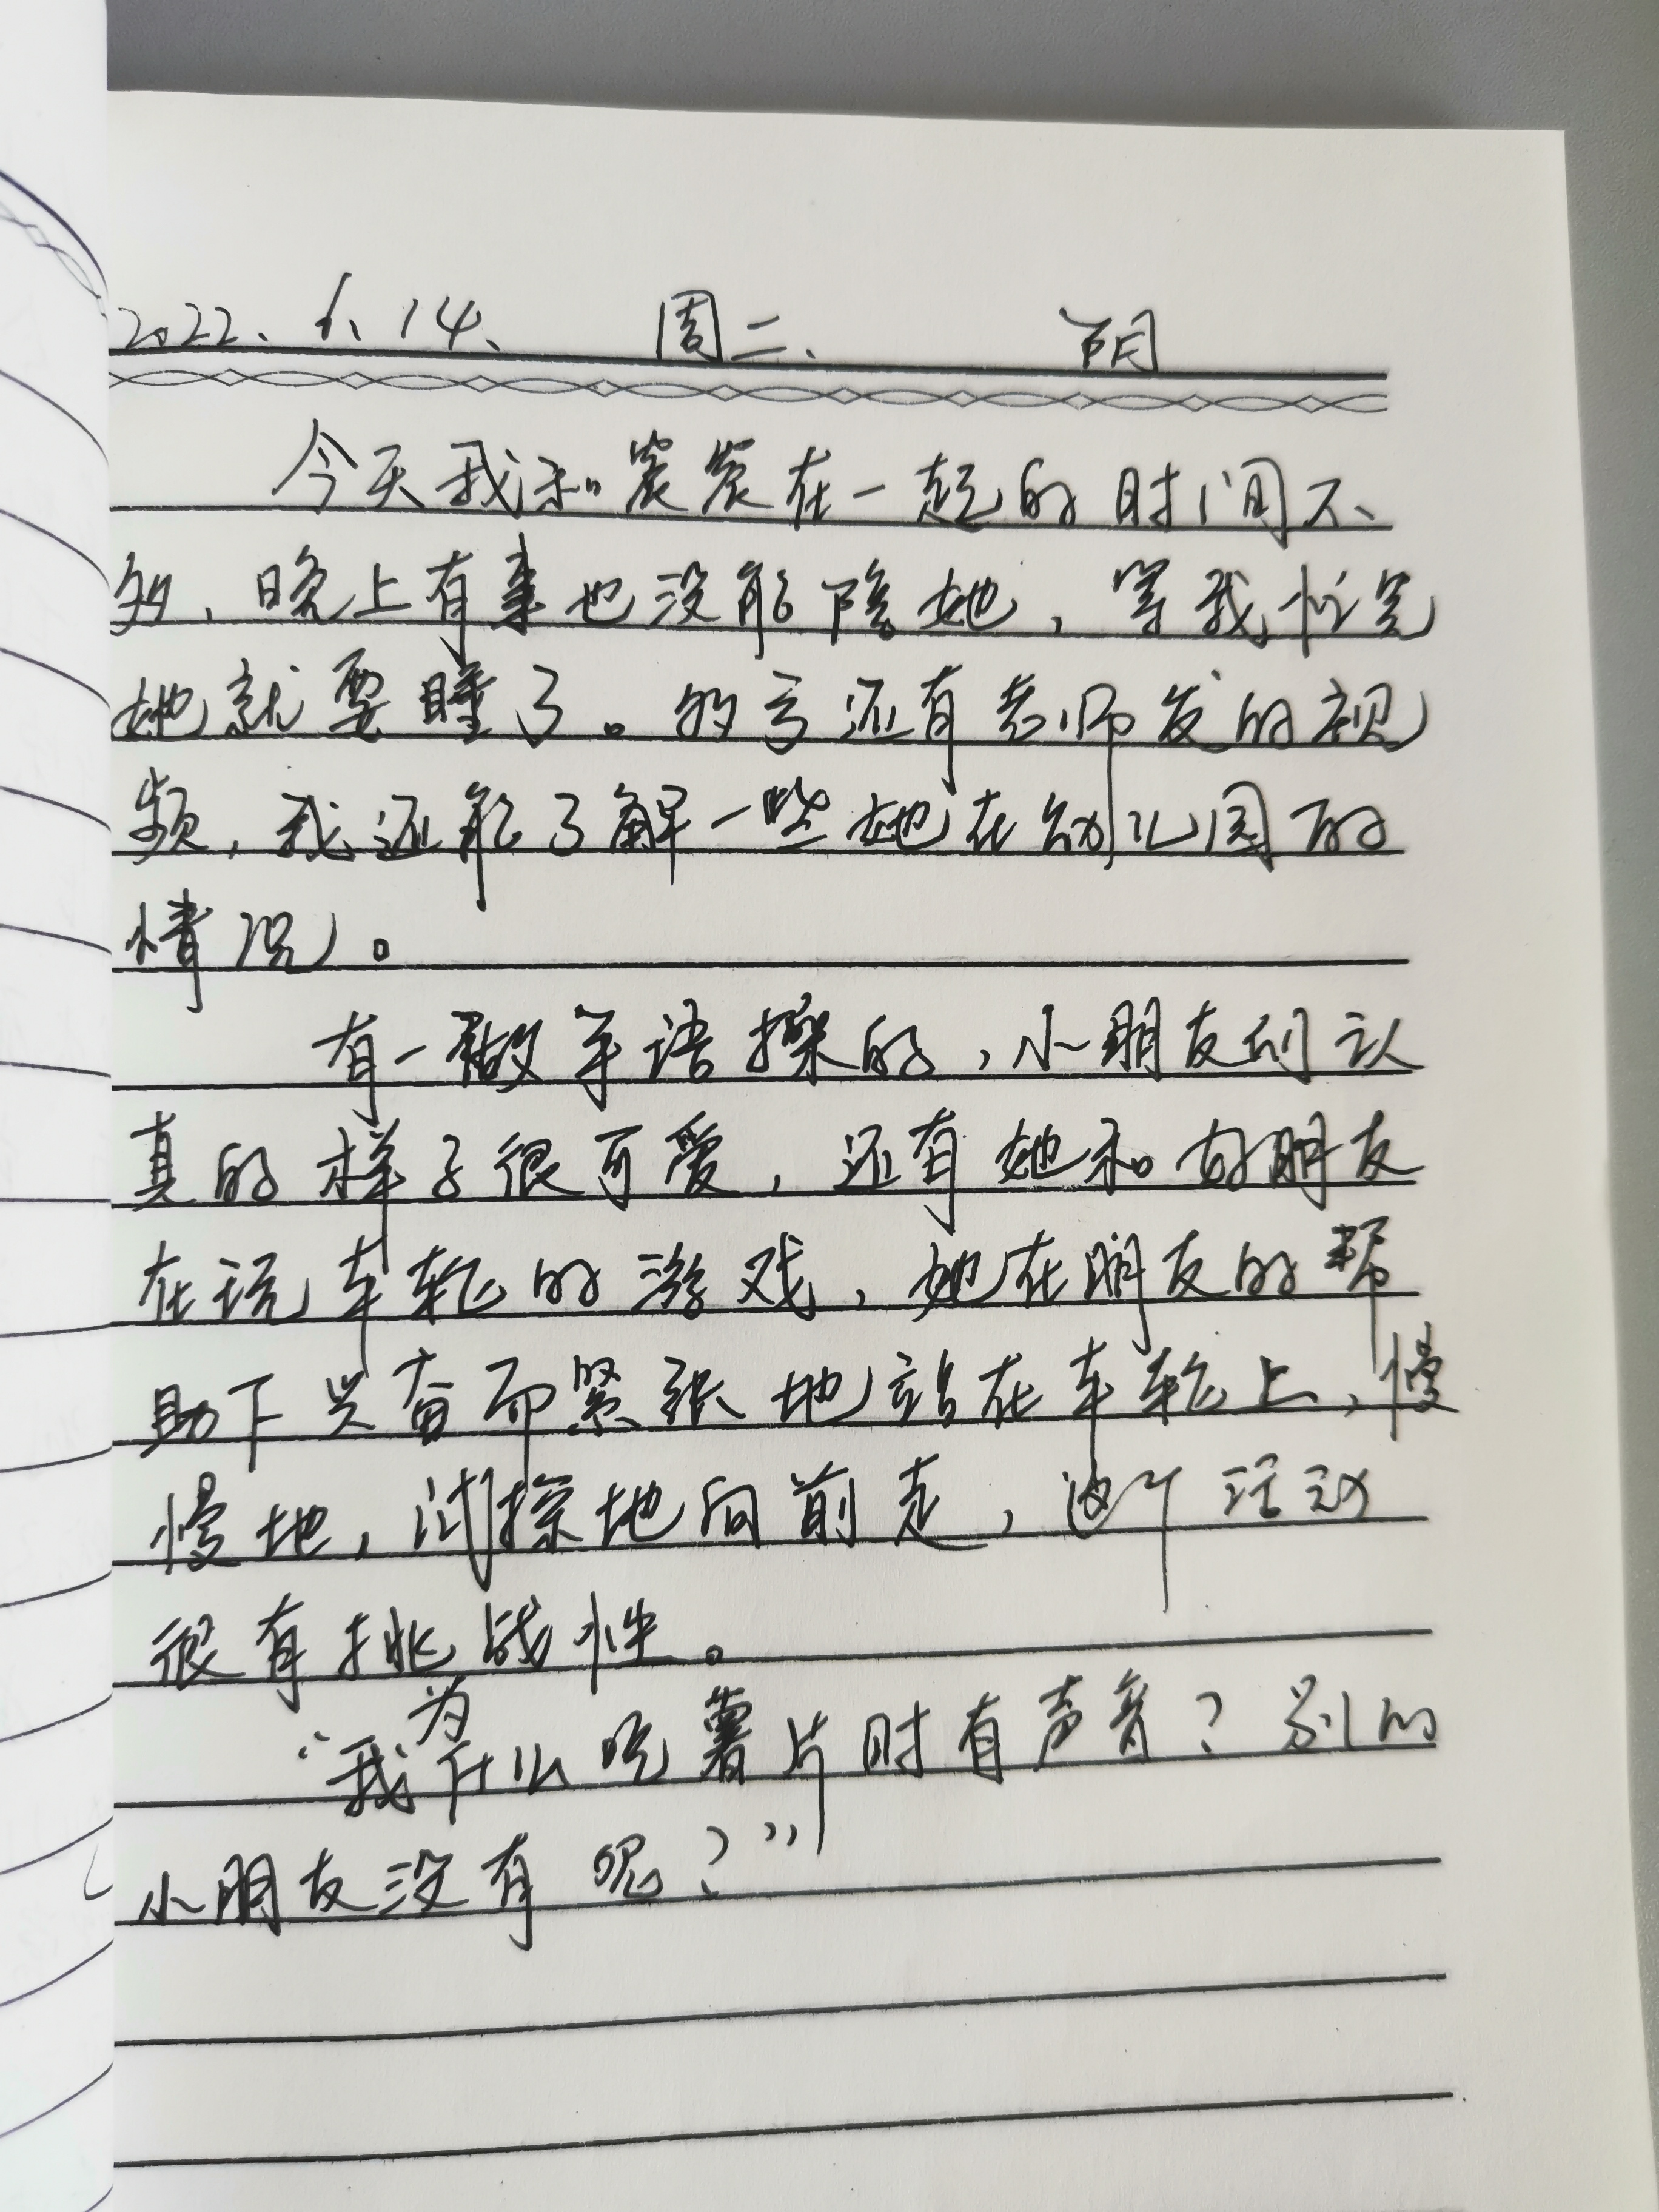 2022.6.14. 周二. 阴
今天我和宸宸在一起的时间不
多,晚上有事也没能陪她,等我忙完
她就要睡了。的亏还有老师发的视
频,我还能了解一些她在幼儿园的
情况。
有一做手语操的,小朋友们认
真的样子很可爱,还有她和好朋友
在玩车轮的游戏,她在朋友的帮
助下兴奋而紧张地站在车轮上,慢
慢地,试探地向前走,这个活动
很有挑战性。
“我为什么吃薯片时有声音?别的
小朋友没有呢?”